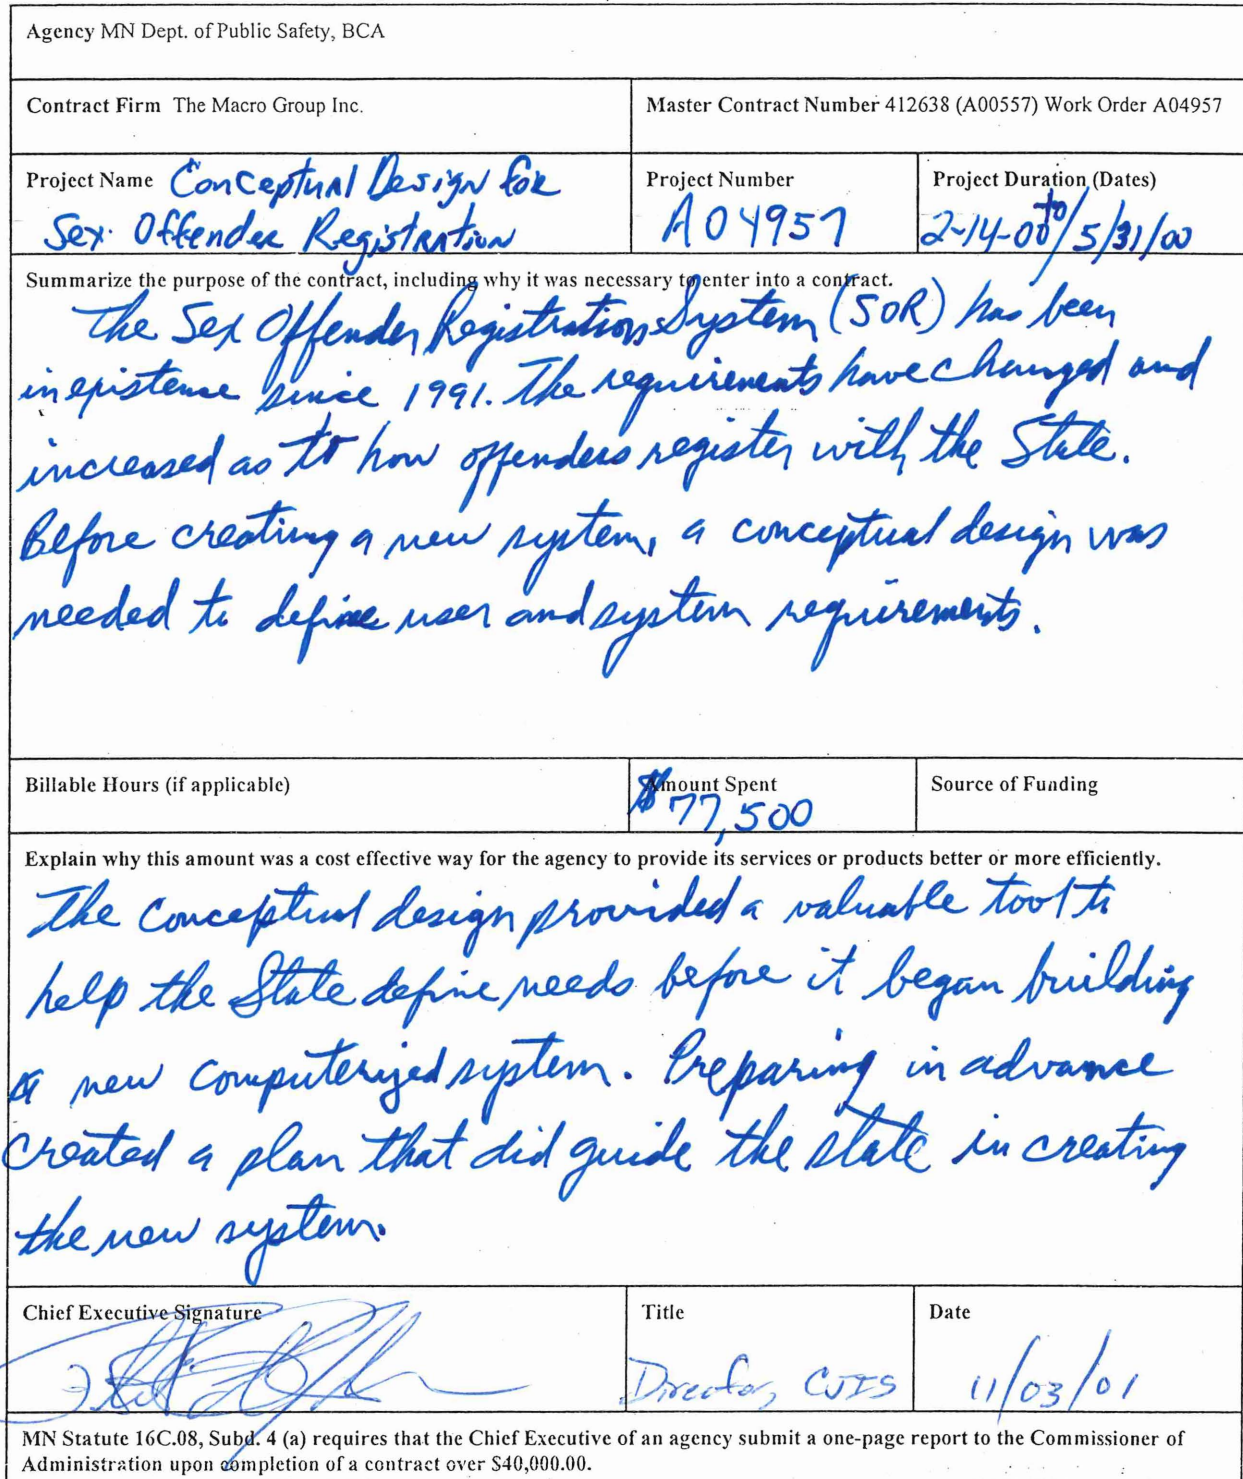 Agency MN Dept. of Public Safety, BCA
Contract Firm The Macro Group Inc.
Master Contract Number 412638 (A00557) Work Order A04957
Project Name Conceptual Design for
Sex Offender Registration
Project Number
A04957
Project Duration (Dates)
2-14-00 to 5/31/00
Summarize the purpose of the contract, including why it was necessary to enter into a contract.
The Sex Offender Registration System (SOR) has been
in existence since 1991. The requirements have changed and
increased as to how offenders register with the State.
Before creating a new system, a conceptual design was
needed to define user and system requirements.
Billable Hours (if applicable)
Amount Spent
$77,500
Source of Funding
Explain why this amount was a cost effective way for the agency to provide its services or products better or more efficiently.
The conceptual design provided a valuable tool to
help the State define needs before it began building
a new computerized system. Preparing in advance
created a plan that did guide the state in creating
the new system.
Chief Executive Signature
Title
Director, CJIS
Date
11/03/01
MN Statute 16C.08, Subd. 4 (a) requires that the Chief Executive of an agency submit a one-page report to the Commissioner of
Administration upon completion of a contract over $40,000.00.